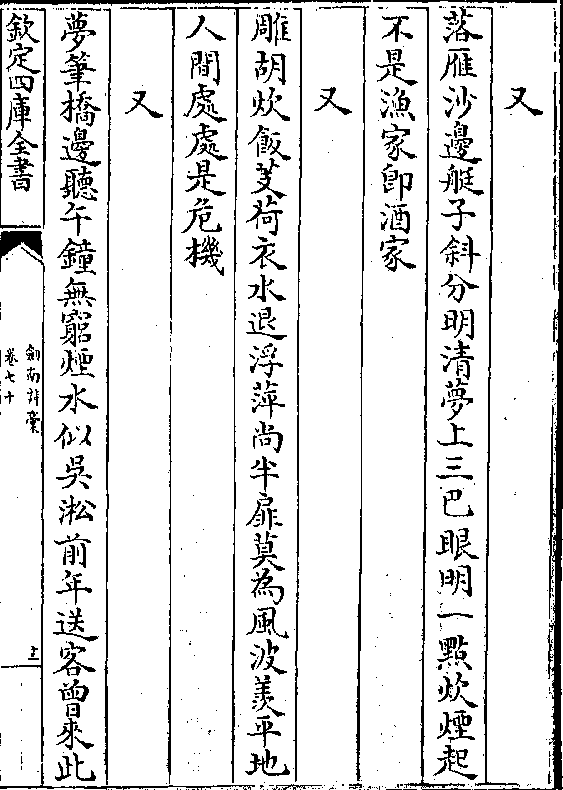 又
落雁沙邊艇子斜分明清夢上三巴眼明一點炊煙起
不是漁家卽酒家
又
雕胡炊飯芰荷衣水退浮萍尚半扉莫為風波羨平地
人間處處是危機
又
夢筆橋邊聽午鐘無窮煙水似吳淞前年送客曽來此
欽定四庫全書
劍南詩稾
卷七十